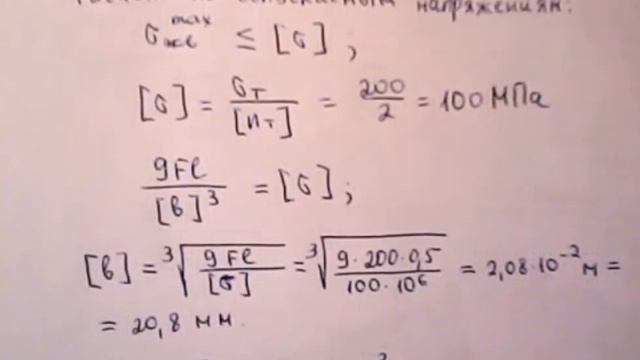 напряжениям:
σ_экв^max ≤ [σ];
[σ] = σ_T / [n_T] = 200/2 = 100 МПа
9Fl / [b]^3 = [σ];
[b] = ∛(9Fl / [σ]) = ∛(9·200·0,5 / 100·10^6) = 2,08·10^-2 м =
= 20,8 мм.